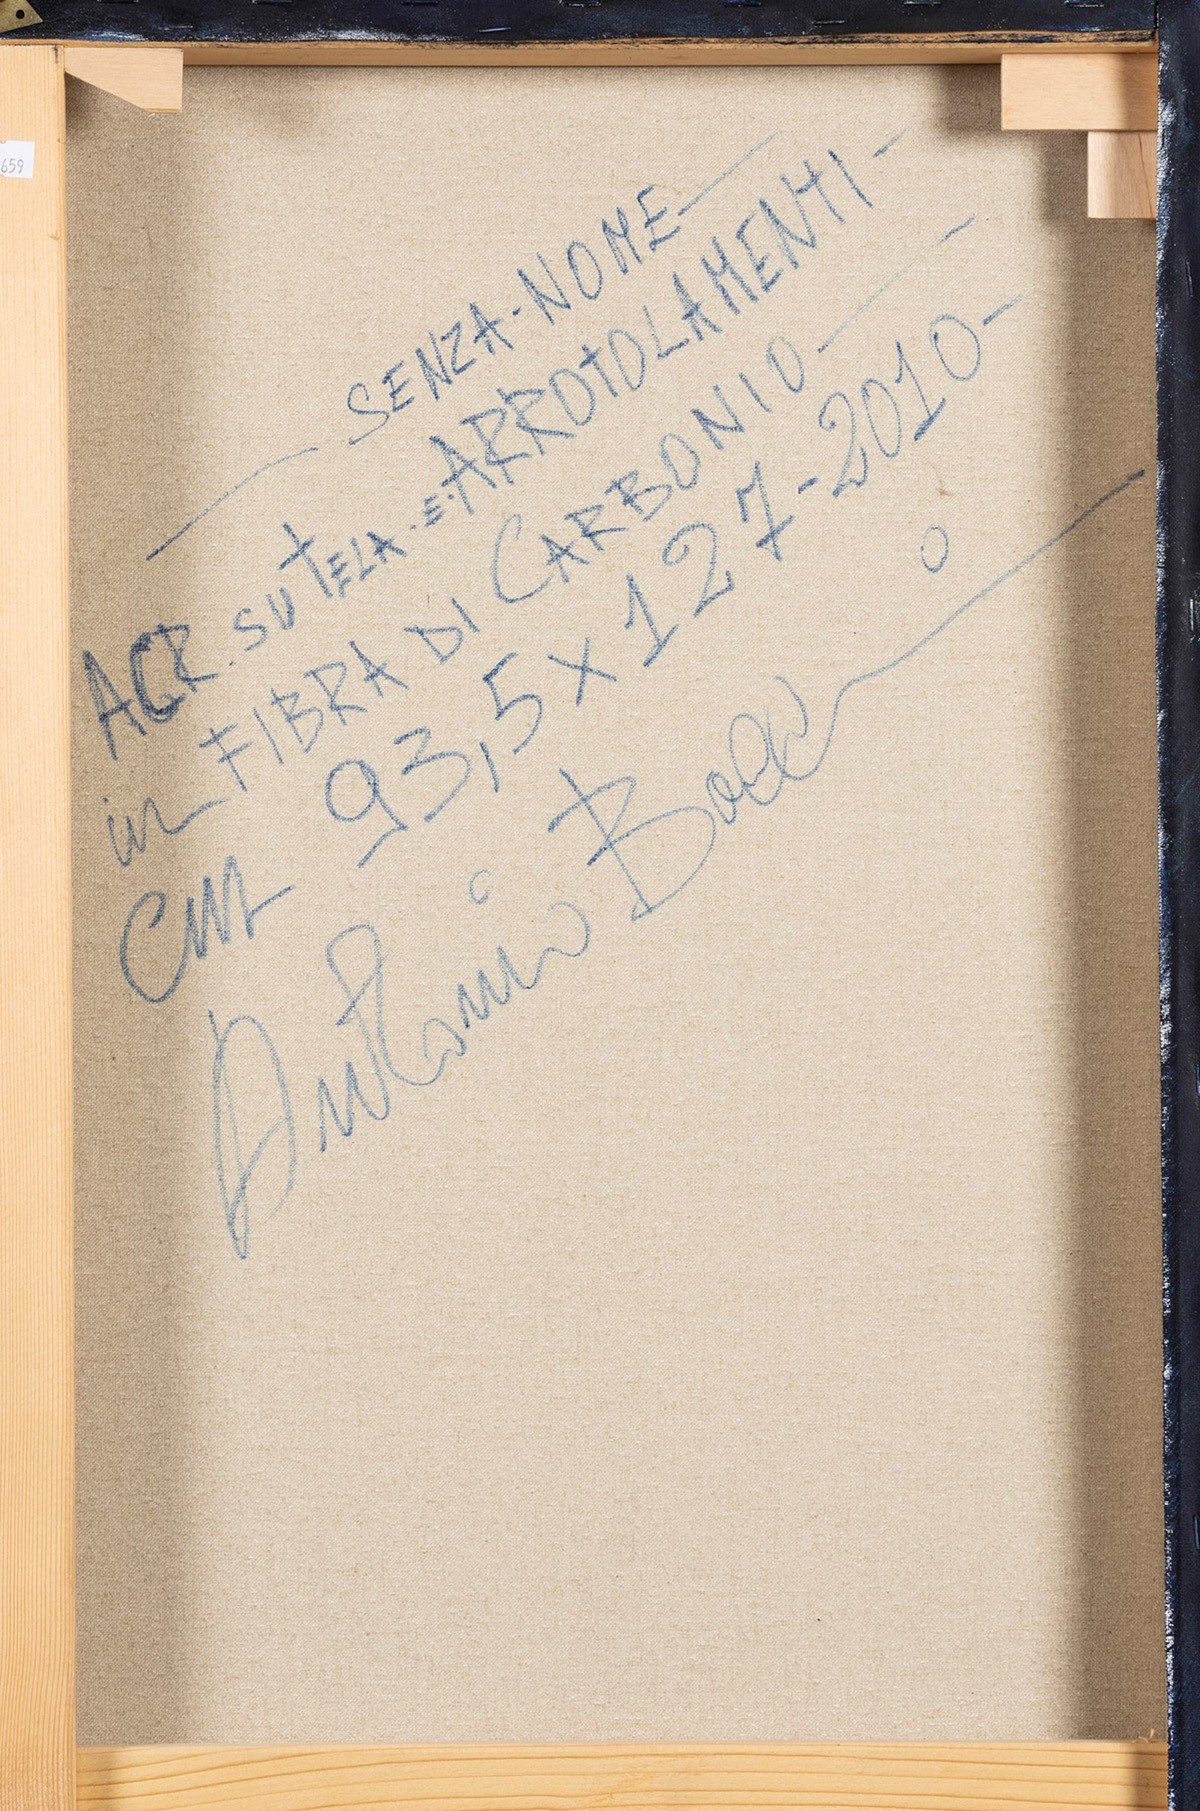 659
— SENZA-NOME —
ACR. SU TELA - E - ARROTOLAMENTI -
in FIBRA DI CARBONIO —
cm 93,5 x 127 - 2010 -
Antonio